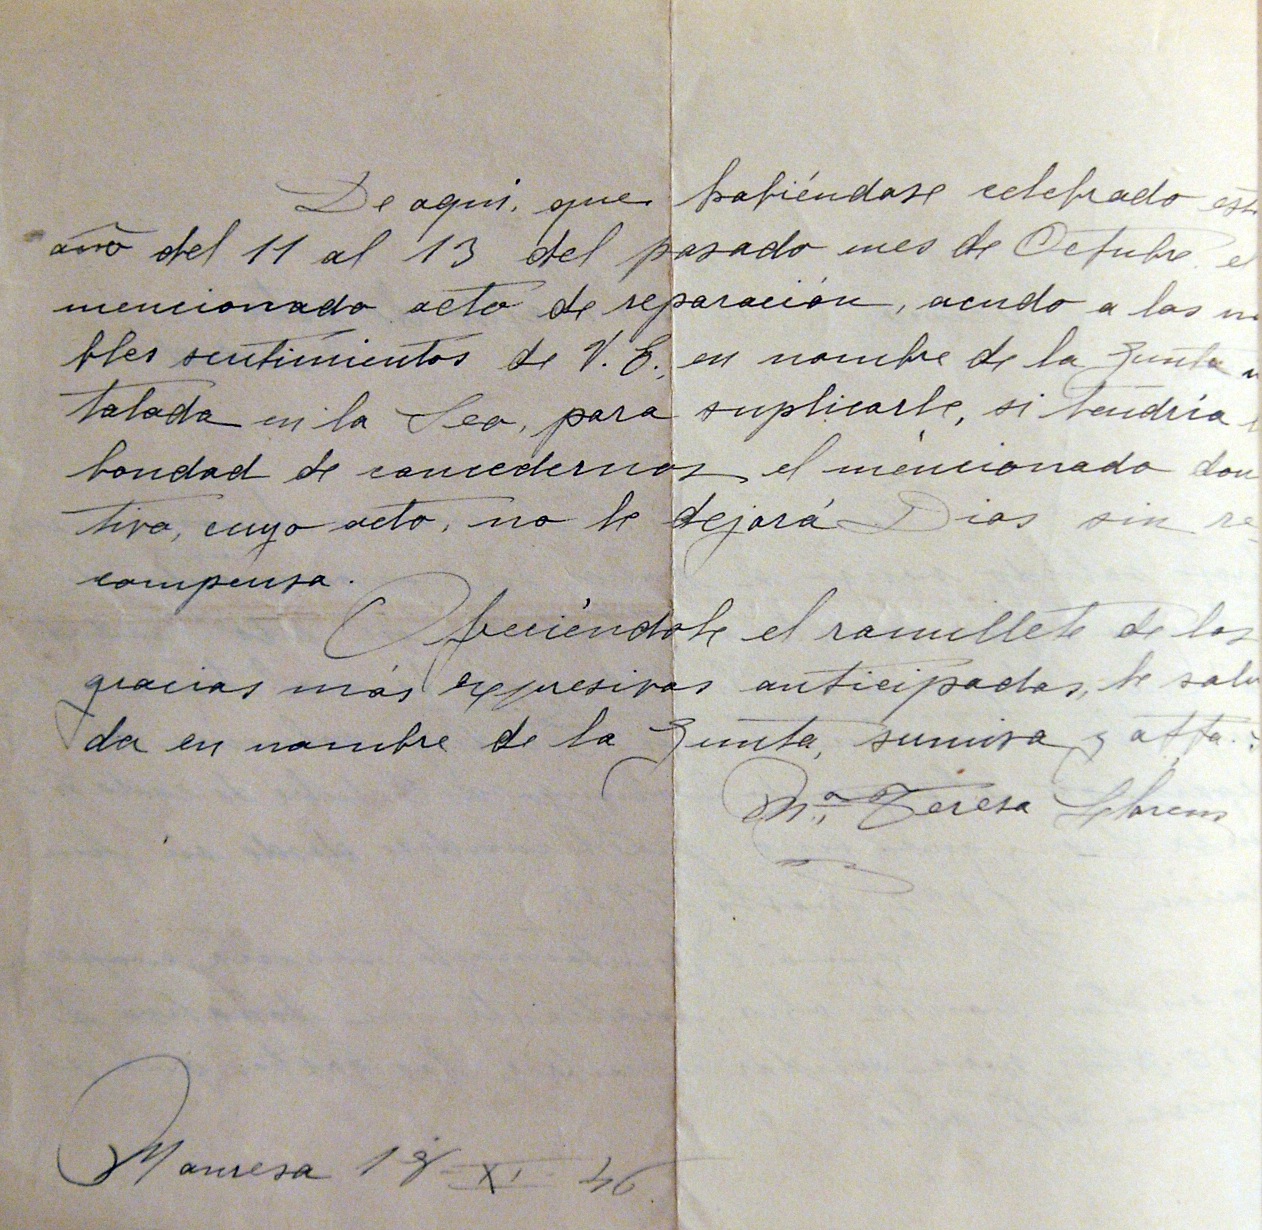 De aquí, que habiéndose celebrado este
año del 11 al 13 del pasado mes de Octubre el
mencionado acto de reparación, acudo a los no
bles sentimientos de V. E., en nombre de la Junta
talada en la Seo, para suplicarle, si tendría
bondad de concedernos el mencionado don
tivo, cuyo acto, no le dejará Dios sin re-
compensa.
Ofreciéndole el ramillete de las
gracias más expresivas anticipadas, le salu
da en nombre de la Junta, sumisa y atta.
Mª Teresa Llorens
Manresa 18 XI 46